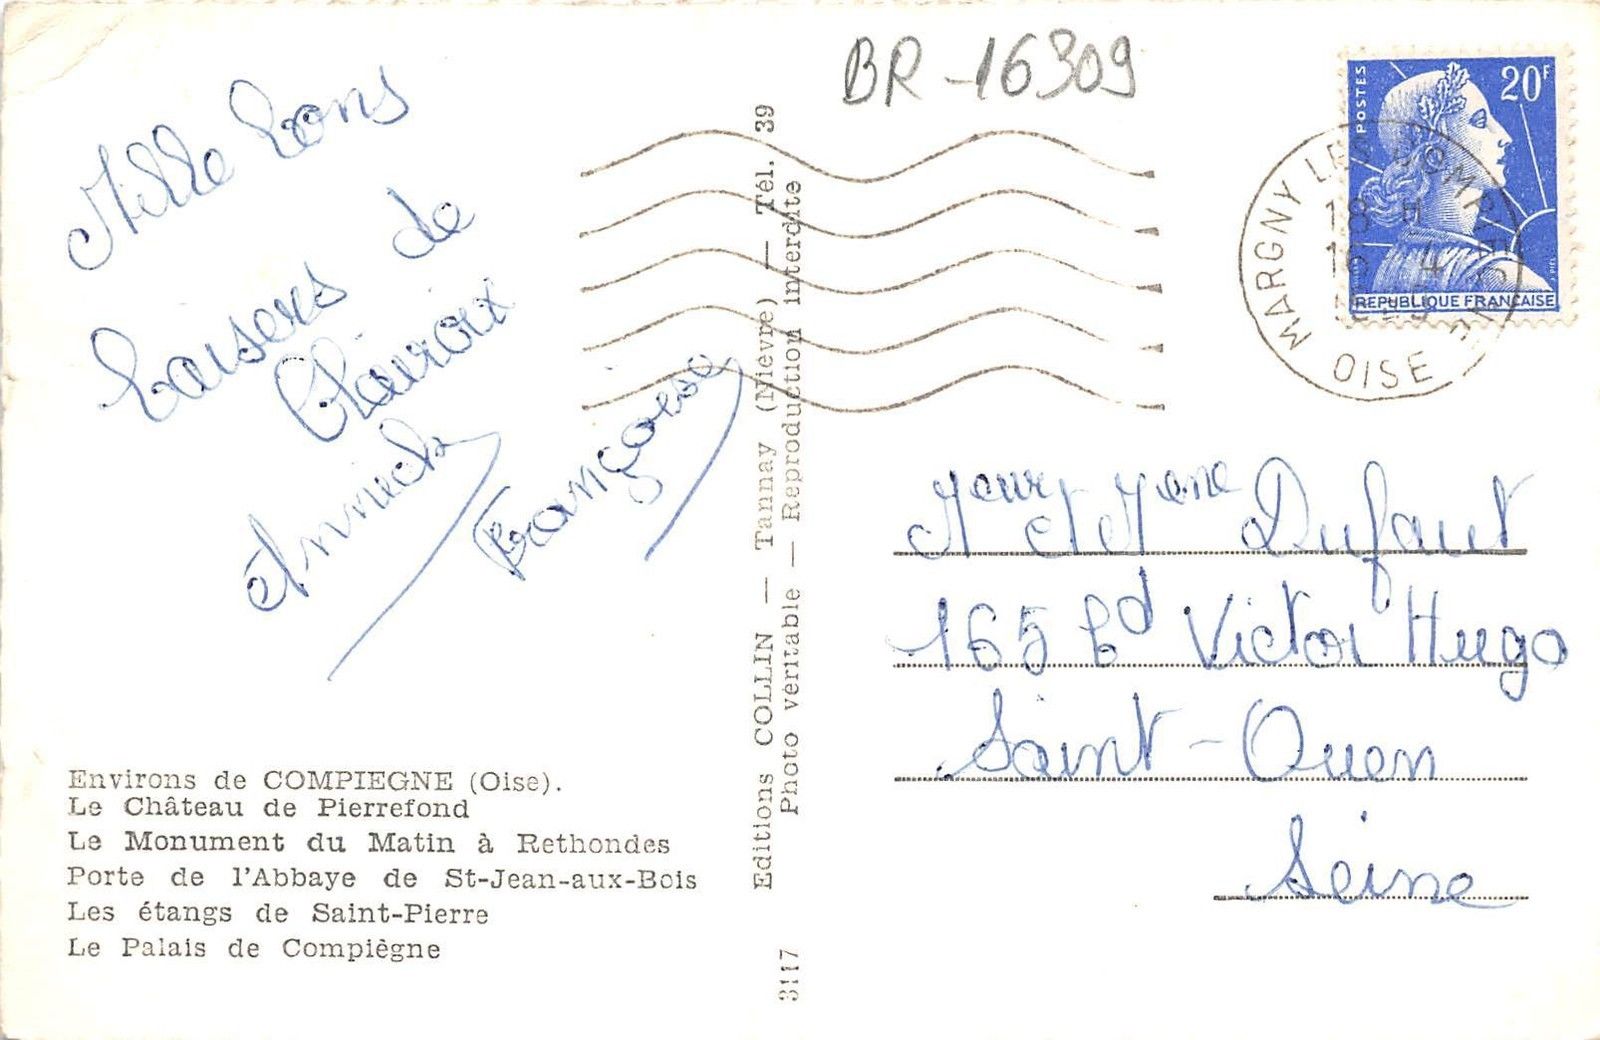 BR-16309
Mille bons
baisers de
Clairoix
Annick
Françoise
Environs de COMPIEGNE (Oise).
Le Château de Pierrefond
Le Monument du Matin à Rethondes
Porte de l'Abbaye de St-Jean-aux-Bois
Les étangs de Saint-Pierre
Le Palais de Compiègne
3117 Editions COLLIN — Tannay (Nièvre) — Tél. 39
Photo véritable — Reproduction interdite
POSTES
20F
REPUBLIQUE FRANÇAISE
MARGNY LES COMPIEGNE
18 H
16 4
OISE
Mr et Mme Dufaut
165 bd Victor Hugo
Saint-Ouen
Seine